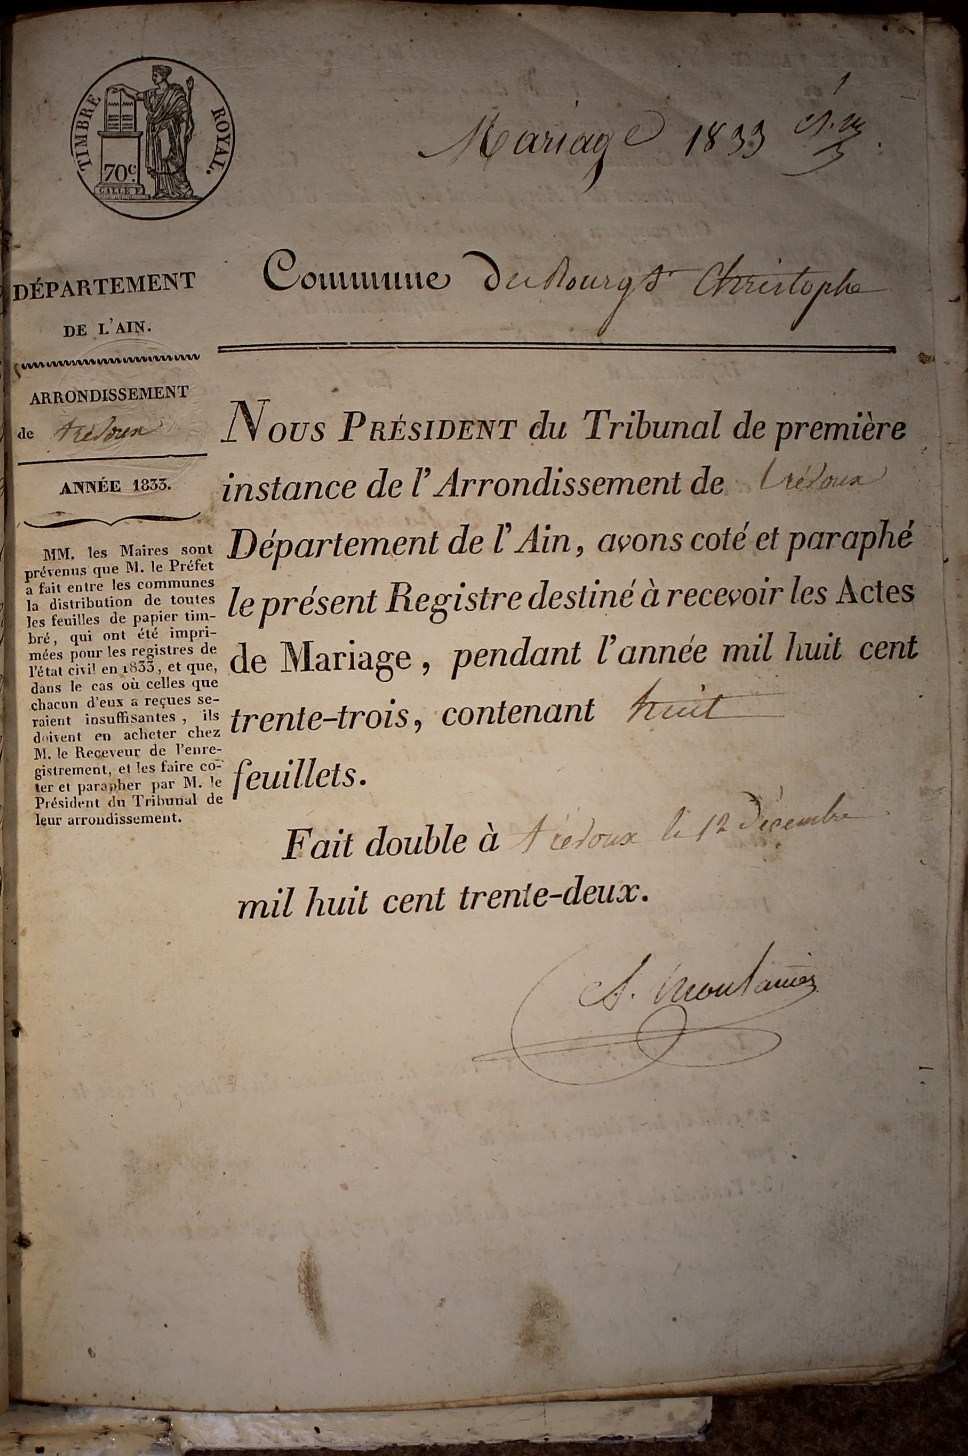 TIMBRE ROYAL.
70c
Mariage 1833
DÉPARTEMENT
DE L'AIN.
ARRONDISSEMENT
de trévoux
ANNÉE 1833.
MM. les Maires sont
prévenus que M. le Préfet
a fait entre les communes
la distribution de toutes
les feuilles de papier tim-
bré, qui ont été impri-
mées pour les registres de
l'état civil en 1833, et que,
dans le cas où celles que
chacun d'eux a reçues se-
raient insuffisantes, ils
doivent en acheter chez
M. le Receveur de l'enre-
gistrement, et les faire co-
ter et parapher par M. le
Président du Tribunal de
leur arrondissement.
Commune Du Bourg St Christophe
NOUS PRÉSIDENT du Tribunal de première
instance de l'Arrondissement de trévoux
Département de l'Ain, avons coté et paraphé
le présent Registre destiné à recevoir les Actes
de Mariage, pendant l'année mil huit cent
trente-trois, contenant huit
feuillets.
Fait double à trévoux le 12 Décembre
mil huit cent trente-deux.